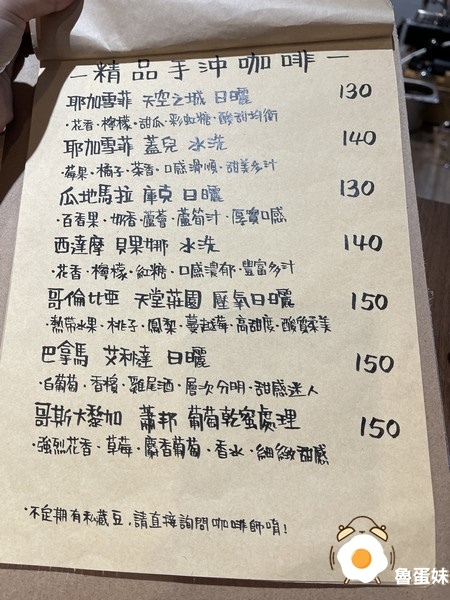 －精品手沖咖啡－
耶加雪菲 天空之城 日曬 130
·花香·檸檬·甜瓜·彩虹糖·酸甜均衡
耶加雪菲 蓋兒 水洗 140
·莓果·橘子·茶香·口感滑順·甜美多汁
瓜地馬拉 庫克 日曬 130
·百香果·奶香·蘆薈·蘆筍汁·厚實口感
西達摩 貝果娜 水洗 140
·花香·檸檬·紅糖·口感濃郁·豐富多汁
哥倫比亞 天堂莊園 厭氧日曬 150
·熱帶水果·桃子·鳳梨·蔓越莓·高甜度·酸質柔美
巴拿馬 艾利達 日曬 150
·白葡萄·香檳·雞尾酒·層次分明·甜感迷人
哥斯大黎加 蕭邦 葡萄乾蜜處理 150
·強烈花香·草莓·麝香葡萄·香水·細緻甜感
·不定期有私藏豆,請直接詢問咖啡師唷!
魯蛋妹